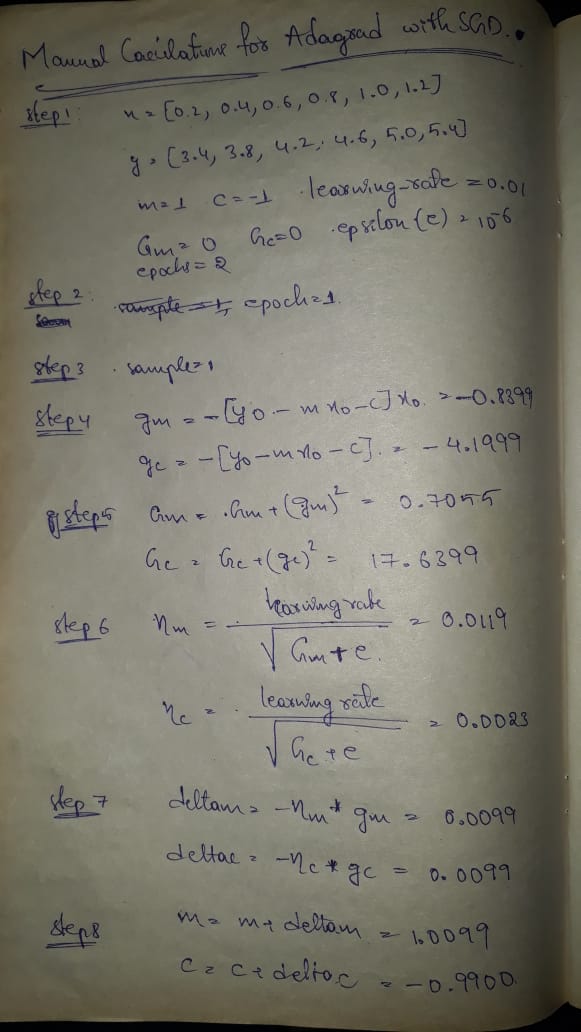 Manual Caculations for Adagrad with SGD.
step 1: x = [0.2, 0.4, 0.6, 0.8, 1.0, 1.2]
y = [3.4, 3.8, 4.2, 4.6, 5.0, 5.4]
m=1 c=-1 learning-rate = 0.01
Gm = 0 Gc=0 epsilon (e) = 10^-6
epochs = 2
step 2: sample = 1, epoch=1.
step 3 sample=1
step 4 gm = -[y0 - m x0 - c] x0. = -0.8399
gc = -[y0 - m x0 - c]. = -4.1999
step 5 Gm = Gm + (gm)^2 = 0.7055
Gc = Gc + (gc)^2 = 17.6399
step 6 ηm = learning rate / √Gm + e. = 0.0119
ηc = learning rate / √Gc + e = 0.0023
step 7 deltam = -ηm * gm = 0.0099
deltac = -ηc * gc = 0.0099
step 8 m = m + deltam = 1.0099
c = c + deltac = -0.9900